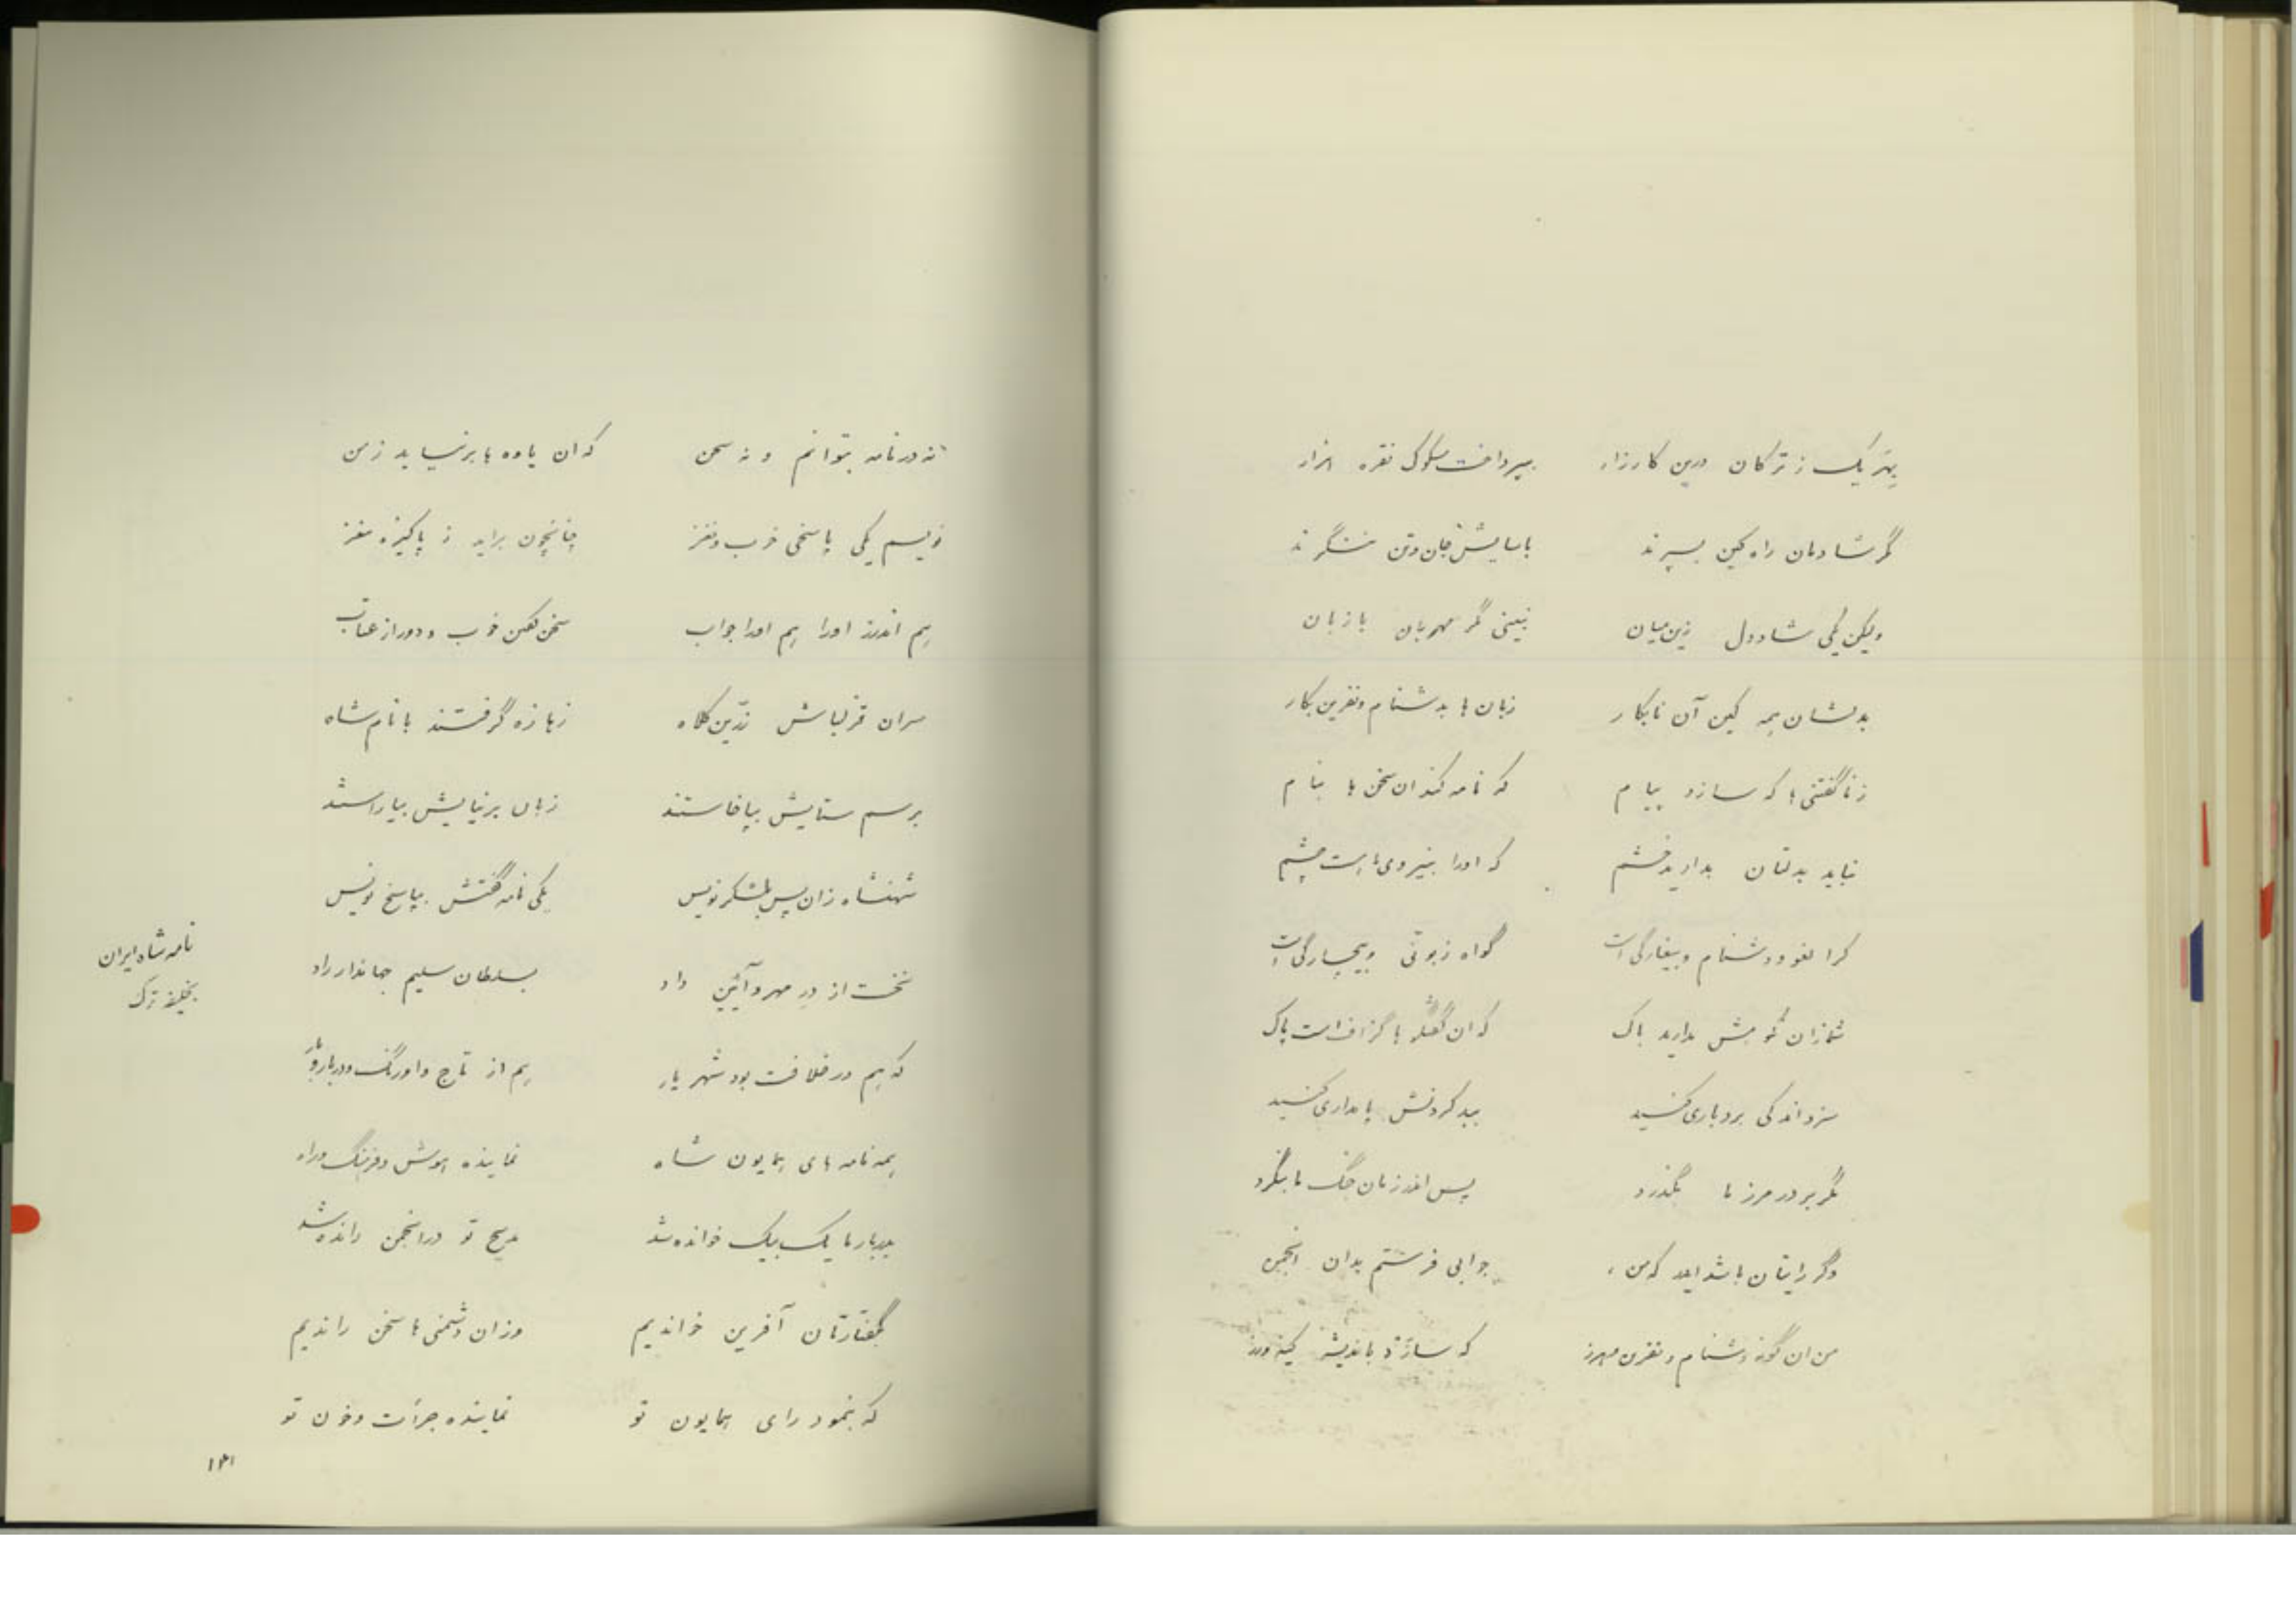 بهر یک ز ترکان درین کارزار بپرداخت مسکوک نقره هزار
مگر شادمان راه کین بسپرند باسایش جان و تن ننگرند
ولیکن یکی شاددل زین میان نبینی مگر مهربان با زبان
بدلشان همه کین آن نابکار زبان ها بدشنام و نفرین بکار
ز ناگفتنی ها که سازد پیام که نامه کند ان سخن ها بنام
نباید بدلتان بدارید خشم که اورا بنیروی ما هست چشم
کرا لغو و دشنام و بیغارگی است گواه زبونی و بیچارگی است
شما زان نکوهش مدارید باک که ان گفتگو با گزاف است پاک
سزد اندکی بردباری کنید ببد کردنش پایداری کنید
مگر بر در مرز ما بگذرد پس اندر زمان جنگ ما بنگرد
وگر رایتان باشد اید که من جوابی فرستم بدان انجمن
من ان گونه دشنام و نفرین هرز که سازد باندیشه کینه ورز
نه در نامه بتوانم و نه سخن که ان یاوه ها برنیاید ز من
نویسم یکی پاسخی خوب و نغز چنانچون براید ز پاکیزه مغز
هم اندرز اورا هم اورا جواب سخن گفتن خوب و دور از عتاب
سران قزلباش زرّین کلاه زها زه گرفتند با نام شاه
برسم ستایش بپا خاستند زبان بر نیایش بیاراستند
شهنشاه زان پس بلشکر نویس یکی نامه گفتش بپاسخ نویس
نخست از در مهر و آئین داد بسلطان سلیم جهاندار راد
نامه شاه ایران
بخلیفه ترک
که هم در خلافت بود شهریار هم از تاج و اورنگ و دربار و بار
همه نامه های همایون شاه نماینده هوش و فرهنگ و راه
بدربار ما یک بیک خوانده شد مدیح تو در انجمن رانده شد
بگفتارتان آفرین خواندیم وزان دشمنی ها سخن راندیم
که بنمود رای همایون تو نماینده جرأت و خون تو
۱۴۱